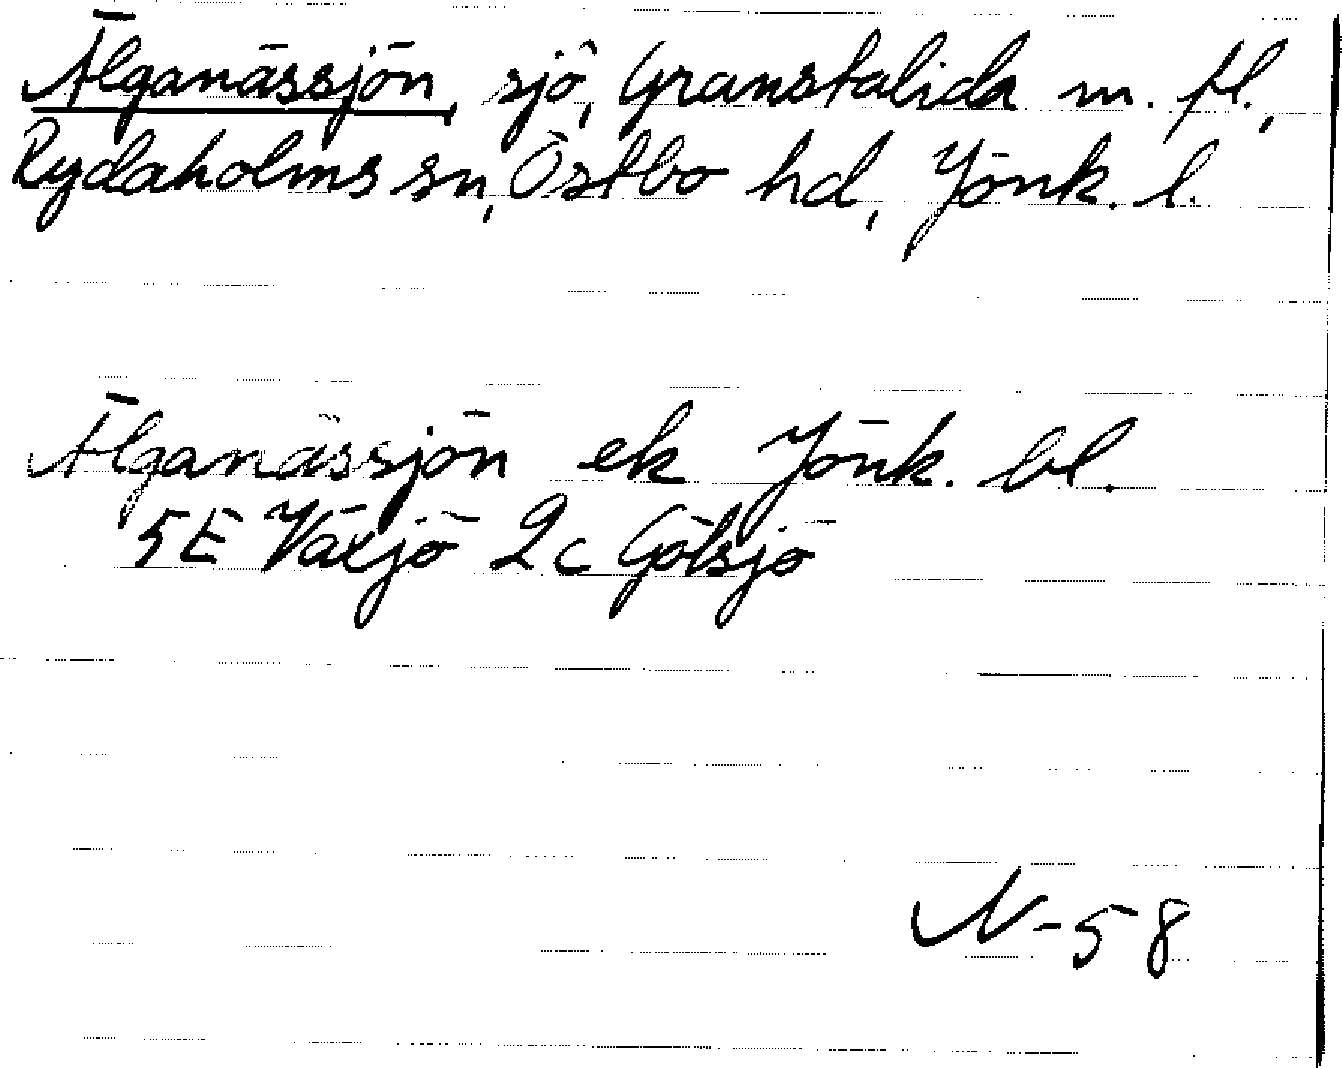 Älganässjön, sjö, Granstalida m. fl.,
Rydaholms sn, Östbo hd, Jönk. l.
Älganässjön ek Jönk. bl.
5E Växjö 2c Götsjö
N-58